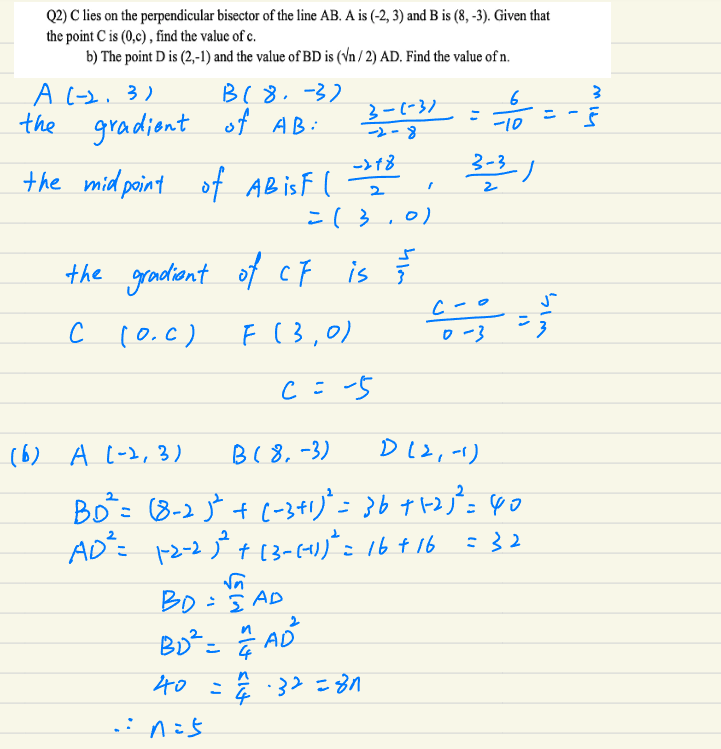 Q2) C lies on the perpendicular bisector of the line AB. A is (-2, 3) and B is (8, -3). Given that
the point C is (0,c) , find the value of c.
b) The point D is (2,-1) and the value of BD is (√n / 2) AD. Find the value of n.
A (-2, 3) B( 8. -3)
the gradient of AB: 3-(-3) / -2-8 = 6 / -10 = - 3/5
the midpoint of AB is F ( -2+8 / 2 , 3-3 / 2 )
= ( 3 , 0)
the gradient of CF is 5/3
C (0. c) F (3, 0) c - 0 / 0 - 3 = 5/3
C = -5
(b) A (-2, 3) B( 8, -3) D (2, -1)
BD² = (8-2)² + (-3+1)² = 36 + (-2)² = 40
AD² = (-2-2)² + (3-(-1))² = 16 + 16 = 32
BD = √n/2 AD
BD² = n/4 AD²
40 = n/4 · 32 = 8n
∴ n = 5